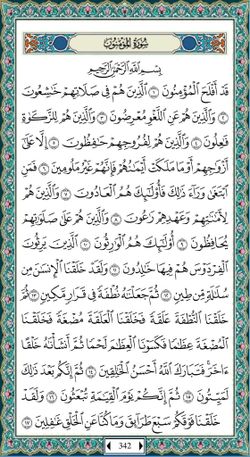 سُورَةُ المُؤْمِنُونَ
بِسْمِ ٱللَّهِ ٱلرَّحْمَٰنِ ٱلرَّحِيمِ
قَدْ أَفْلَحَ ٱلْمُؤْمِنُونَ ١ ٱلَّذِينَ هُمْ فِى صَلَاتِهِمْ خَٰشِعُونَ
٢ وَٱلَّذِينَ هُمْ عَنِ ٱللَّغْوِ مُعْرِضُونَ ٣ وَٱلَّذِينَ هُمْ لِلزَّكَوٰةِ
فَٰعِلُونَ ٤ وَٱلَّذِينَ هُمْ لِفُرُوجِهِمْ حَٰفِظُونَ ٥ إِلَّا عَلَىٰٓ
أَزْوَٰجِهِمْ أَوْ مَا مَلَكَتْ أَيْمَٰنُهُمْ فَإِنَّهُمْ غَيْرُ مَلُومِينَ ٦ فَمَنِ
ٱبْتَغَىٰ وَرَآءَ ذَٰلِكَ فَأُو۟لَٰٓئِكَ هُمُ ٱلْعَادُونَ ٧ وَٱلَّذِينَ هُمْ
لِأَمَٰنَٰتِهِمْ وَعَهْدِهِمْ رَٰعُونَ ٨ وَٱلَّذِينَ هُمْ عَلَىٰ صَلَوَٰتِهِمْ
يُحَافِظُونَ ٩ أُو۟لَٰٓئِكَ هُمُ ٱلْوَٰرِثُونَ ١٠ ٱلَّذِينَ يَرِثُونَ
ٱلْفِرْدَوْسَ هُمْ فِيهَا خَٰلِدُونَ ١١ وَلَقَدْ خَلَقْنَا ٱلْإِنسَٰنَ مِن
سُلَٰلَةٍ مِّن طِينٍ ١٢ ثُمَّ جَعَلْنَٰهُ نُطْفَةً فِى قَرَارٍ مَّكِينٍ ١٣ ثُمَّ
خَلَقْنَا ٱلنُّطْفَةَ عَلَقَةً فَخَلَقْنَا ٱلْعَلَقَةَ مُضْغَةً فَخَلَقْنَا
ٱلْمُضْغَةَ عِظَٰمًا فَكَسَوْنَا ٱلْعِظَٰمَ لَحْمًا ثُمَّ أَنشَأْنَٰهُ خَلْقًا
ءَاخَرَ ۚ فَتَبَارَكَ ٱللَّهُ أَحْسَنُ ٱلْخَٰلِقِينَ ١٤ ثُمَّ إِنَّكُم بَعْدَ ذَٰلِكَ
لَمَيِّتُونَ ١٥ ثُمَّ إِنَّكُمْ يَوْمَ ٱلْقِيَٰمَةِ تُبْعَثُونَ ١٦ وَلَقَدْ
خَلَقْنَا فَوْقَكُمْ سَبْعَ طَرَآئِقَ وَمَا كُنَّا عَنِ ٱلْخَلْقِ غَٰفِلِينَ ١٧
342